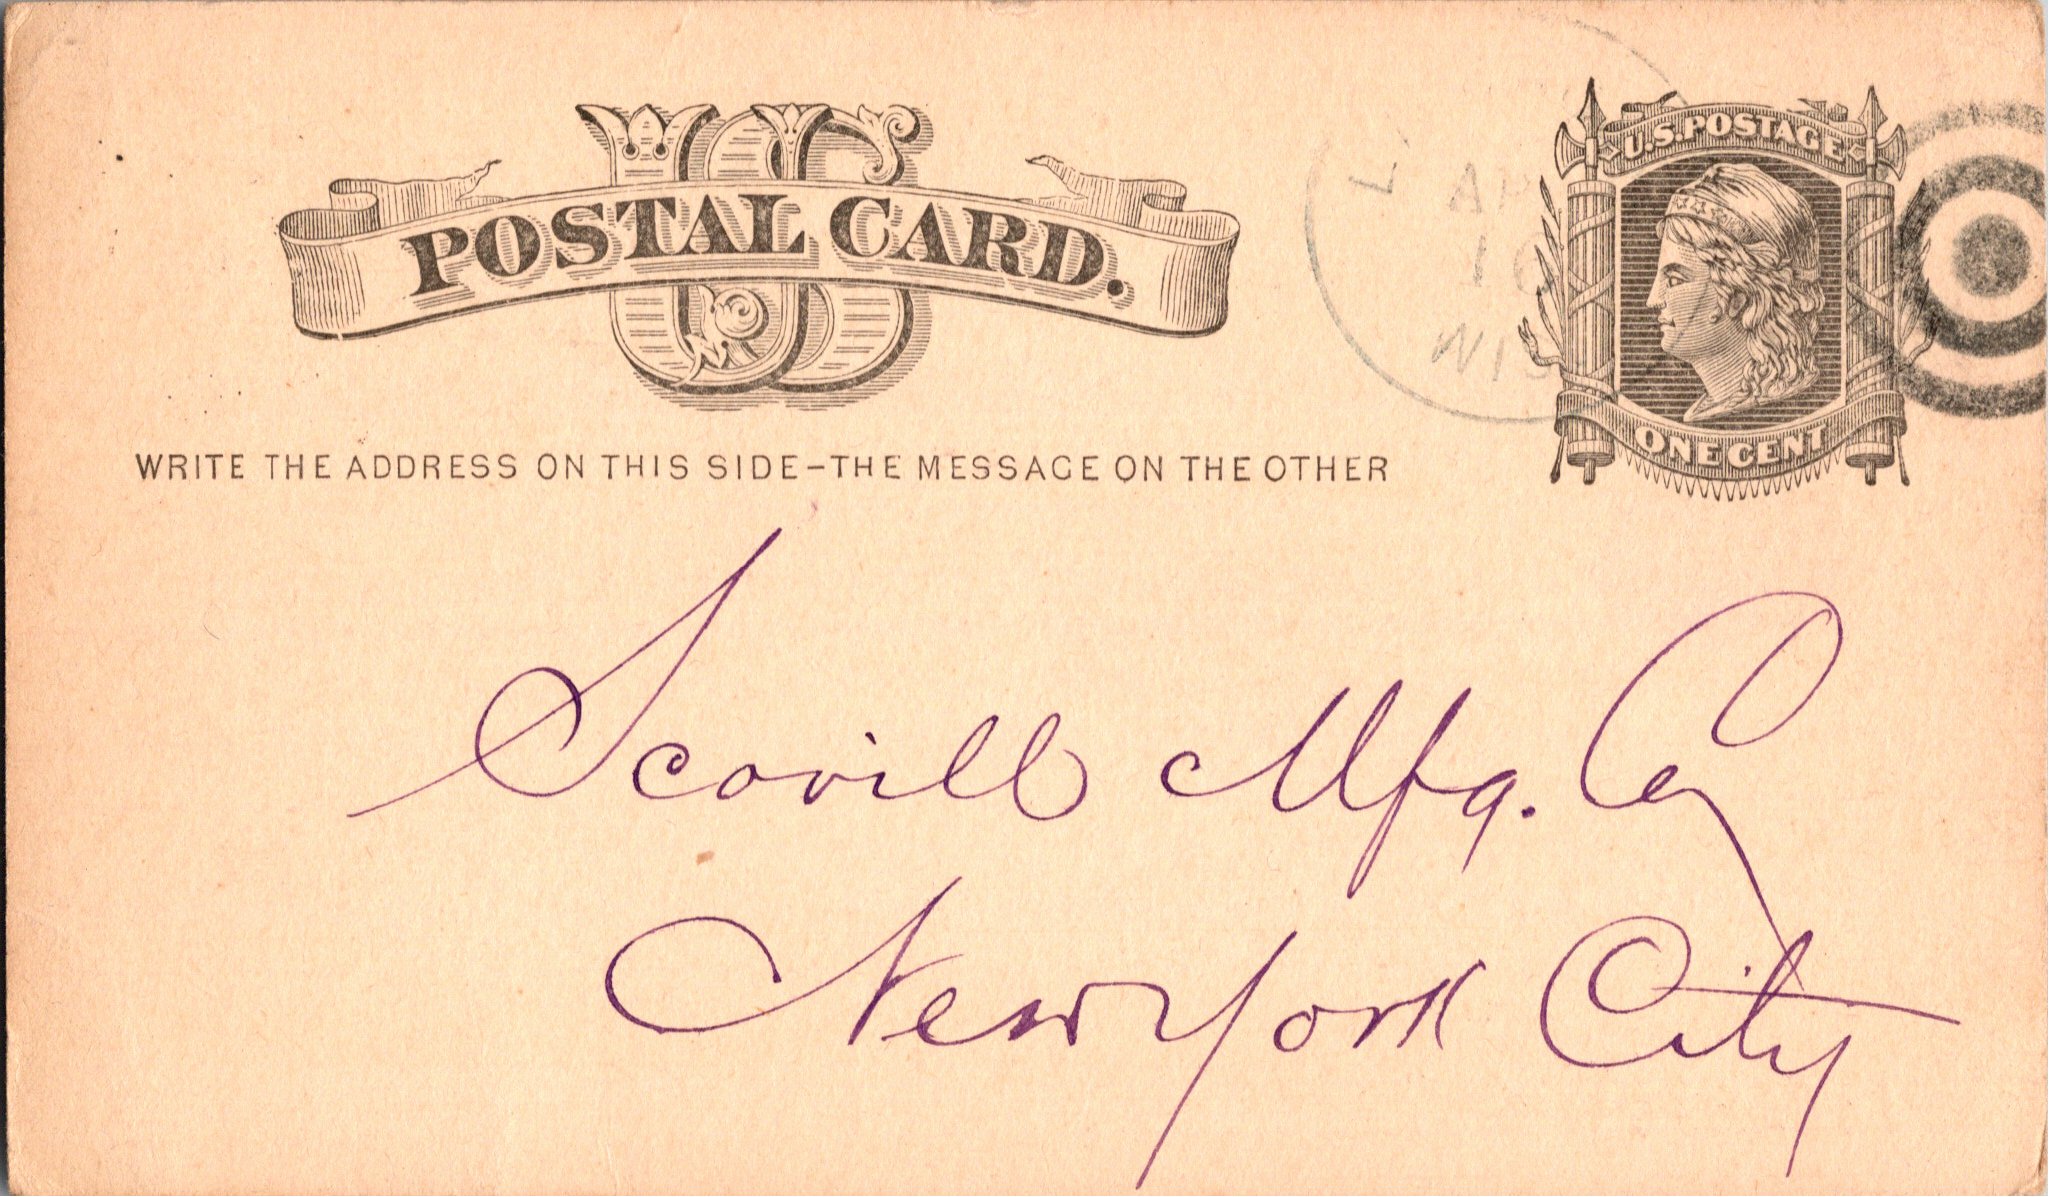 US
POSTAL CARD.
U.S. POSTAGE
ONE CENT
16
WIS
WRITE THE ADDRESS ON THIS SIDE-THE MESSAGE ON THE OTHER
Scovill Mfg. Co
New York City